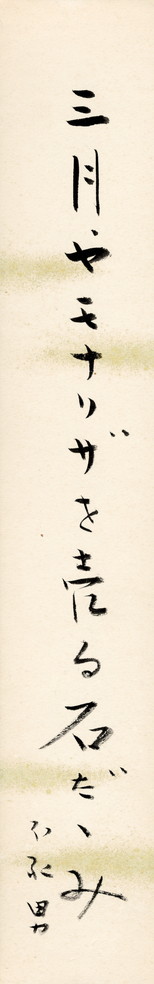 三月やモナリザを売る石だゝみ
不死男